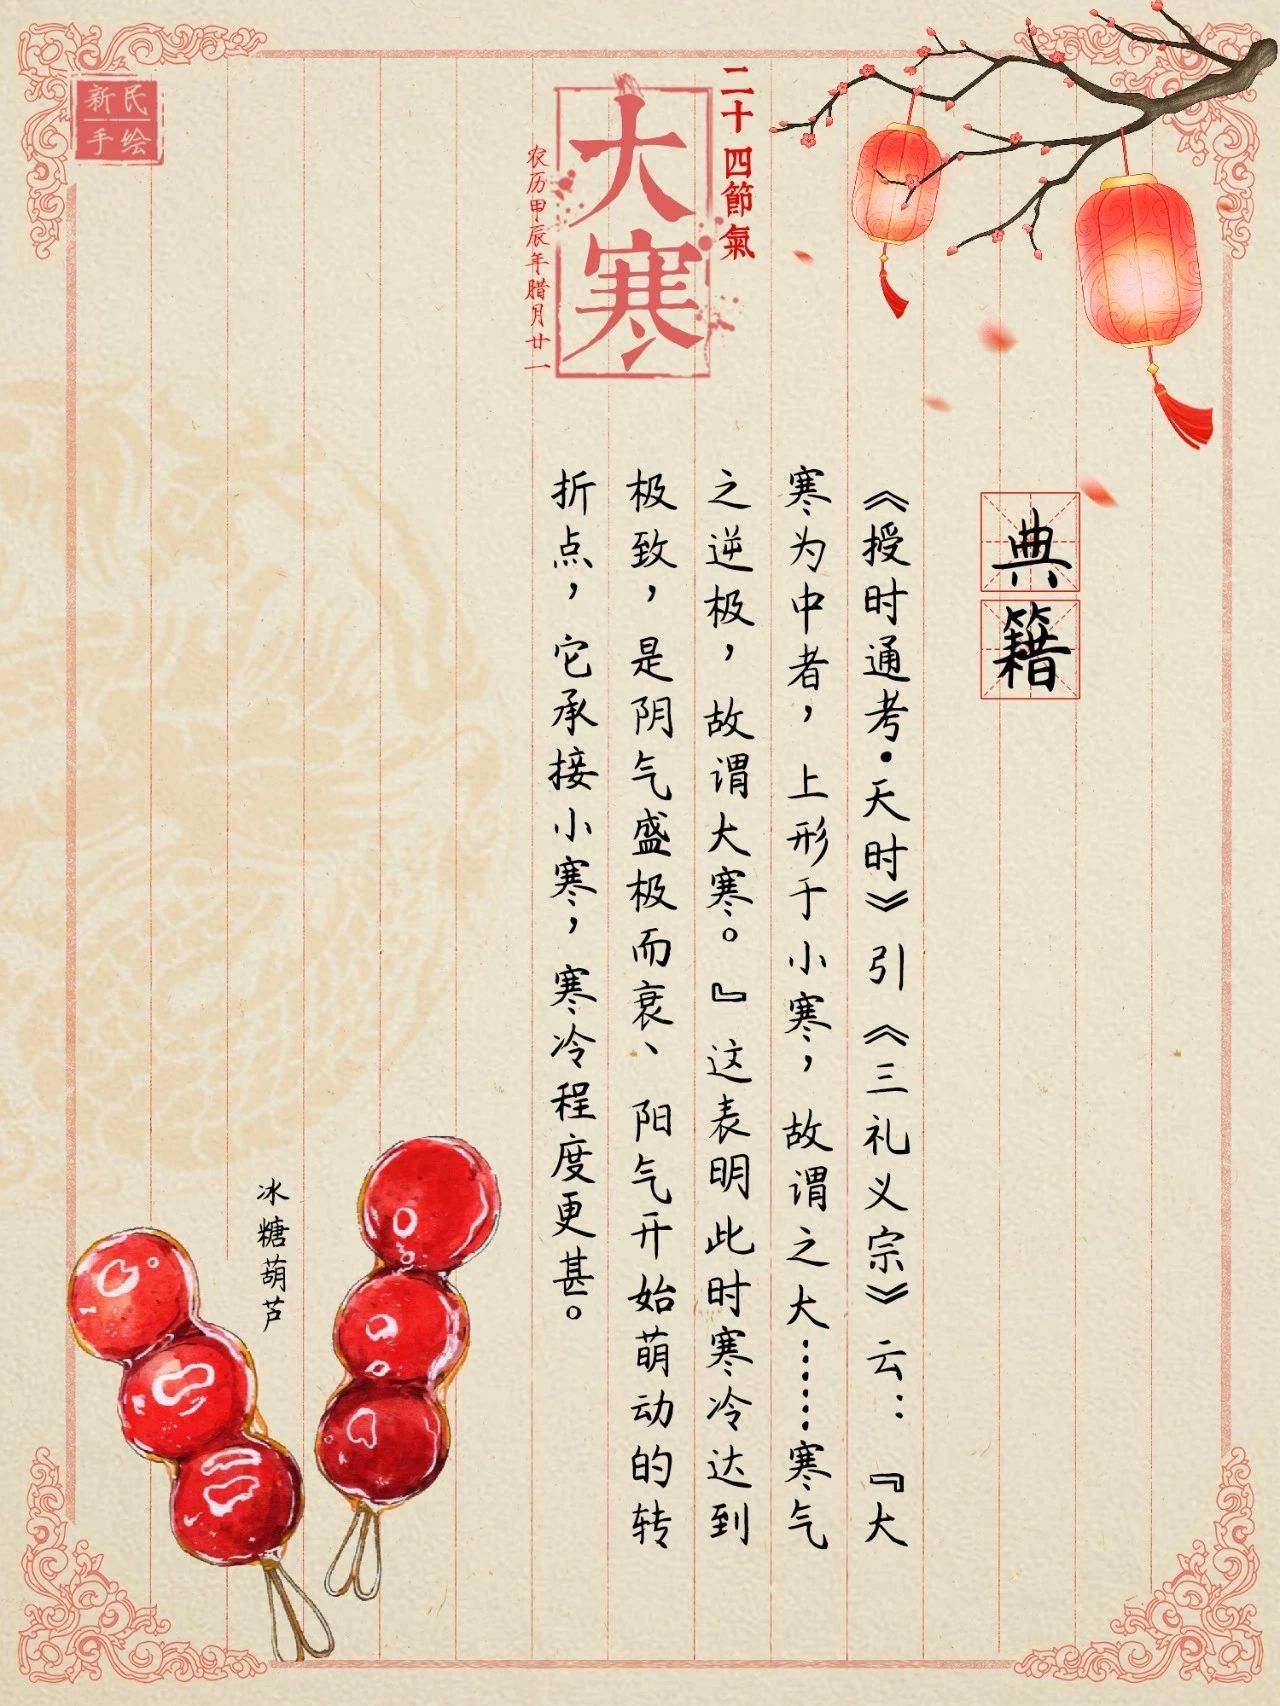 新民
手绘
二十四節氣
大寒
农历甲辰年腊月廿一
典籍
《授时通考·天时》引《三礼义宗》云：『大
寒为中者，上形于小寒，故谓之大……寒气
之逆极，故谓大寒。』这表明此时寒冷达到
极致，是阴气盛极而衰、阳气开始萌动的转
折点，它承接小寒，寒冷程度更甚。
冰糖葫芦